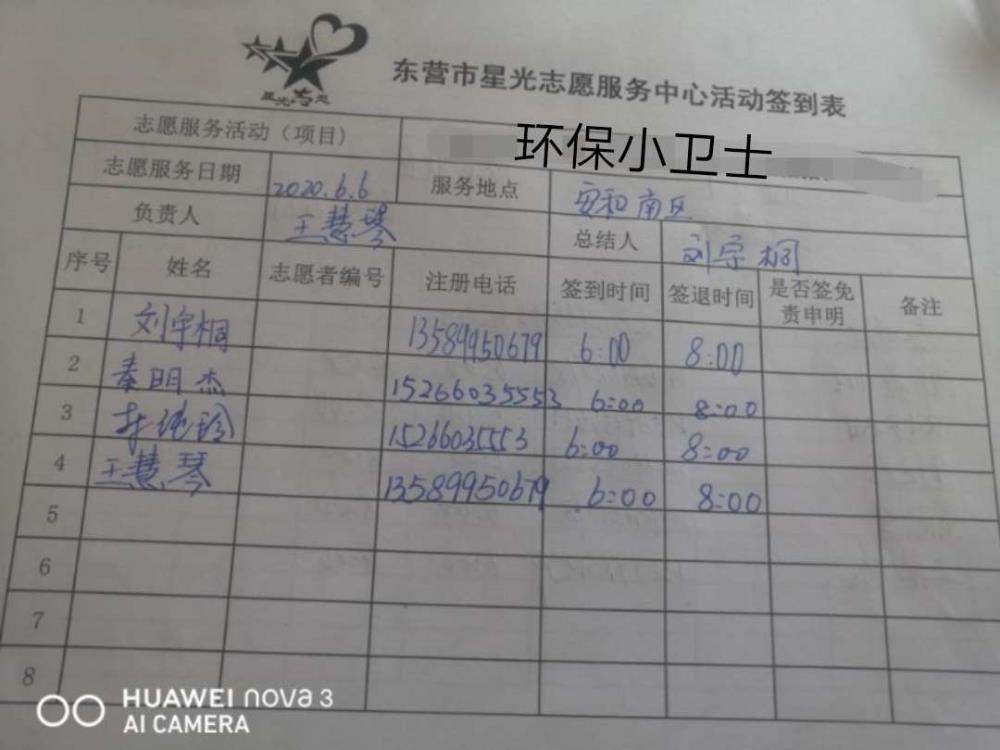 星光志愿
东营市星光志愿服务中心活动签到表
志愿服务活动（项目） 环保小卫士
志愿服务日期 2020.6.6 服务地点 安和南区
负责人 王慧琴 总结人 刘宇桐
序号 姓名 志愿者编号 注册电话 签到时间 签退时间 是否签免责申明 备注
1 刘宇桐 13589950679 6:00 8:00
2 秦明杰 15266035553 6:00 8:00
3 15266035553 6:00 8:00
4 王慧琴 13589950679 6:00 8:00
5
6
7
8
HUAWEI nova 3
AI CAMERA